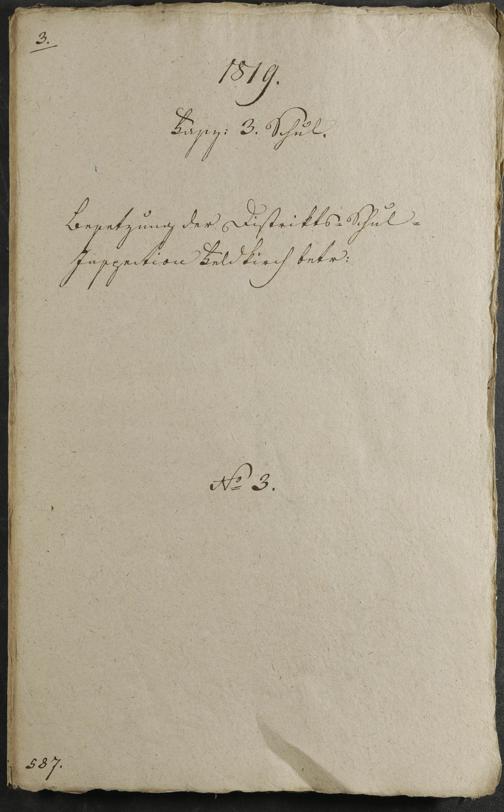 3.
1819.
Fasz: 3. Schul.
Besetzung der Distrikts-Schul-
Inspection Feldkirch betr:
No 3.
587.